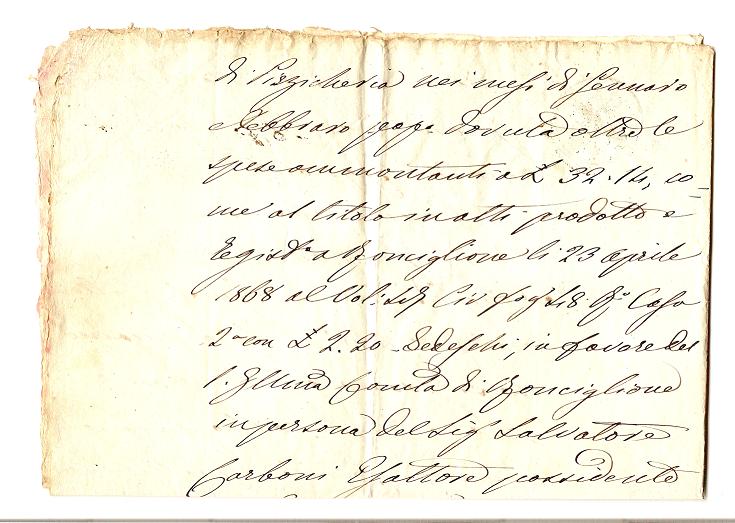 di Pizzicheria nei mesi di Gennaro
Febbraro dovuta oltre le
spese ammontanti a £ 32.14, co=
me al titolo in atti prodotto e
Regist.o a Ronciglione li 23 aprile
1868 al Vol: Civ. fogl:
2° con £ 2.20 - Sedeschi, in favore del
Comità di Ronciglione
in persona del Sig.r Salvatore
Carboni Esattore possidente